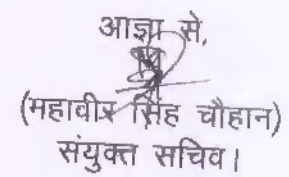 आज्ञा से,
(महावीर सिंह चौहान)
संयुक्त सचिव।